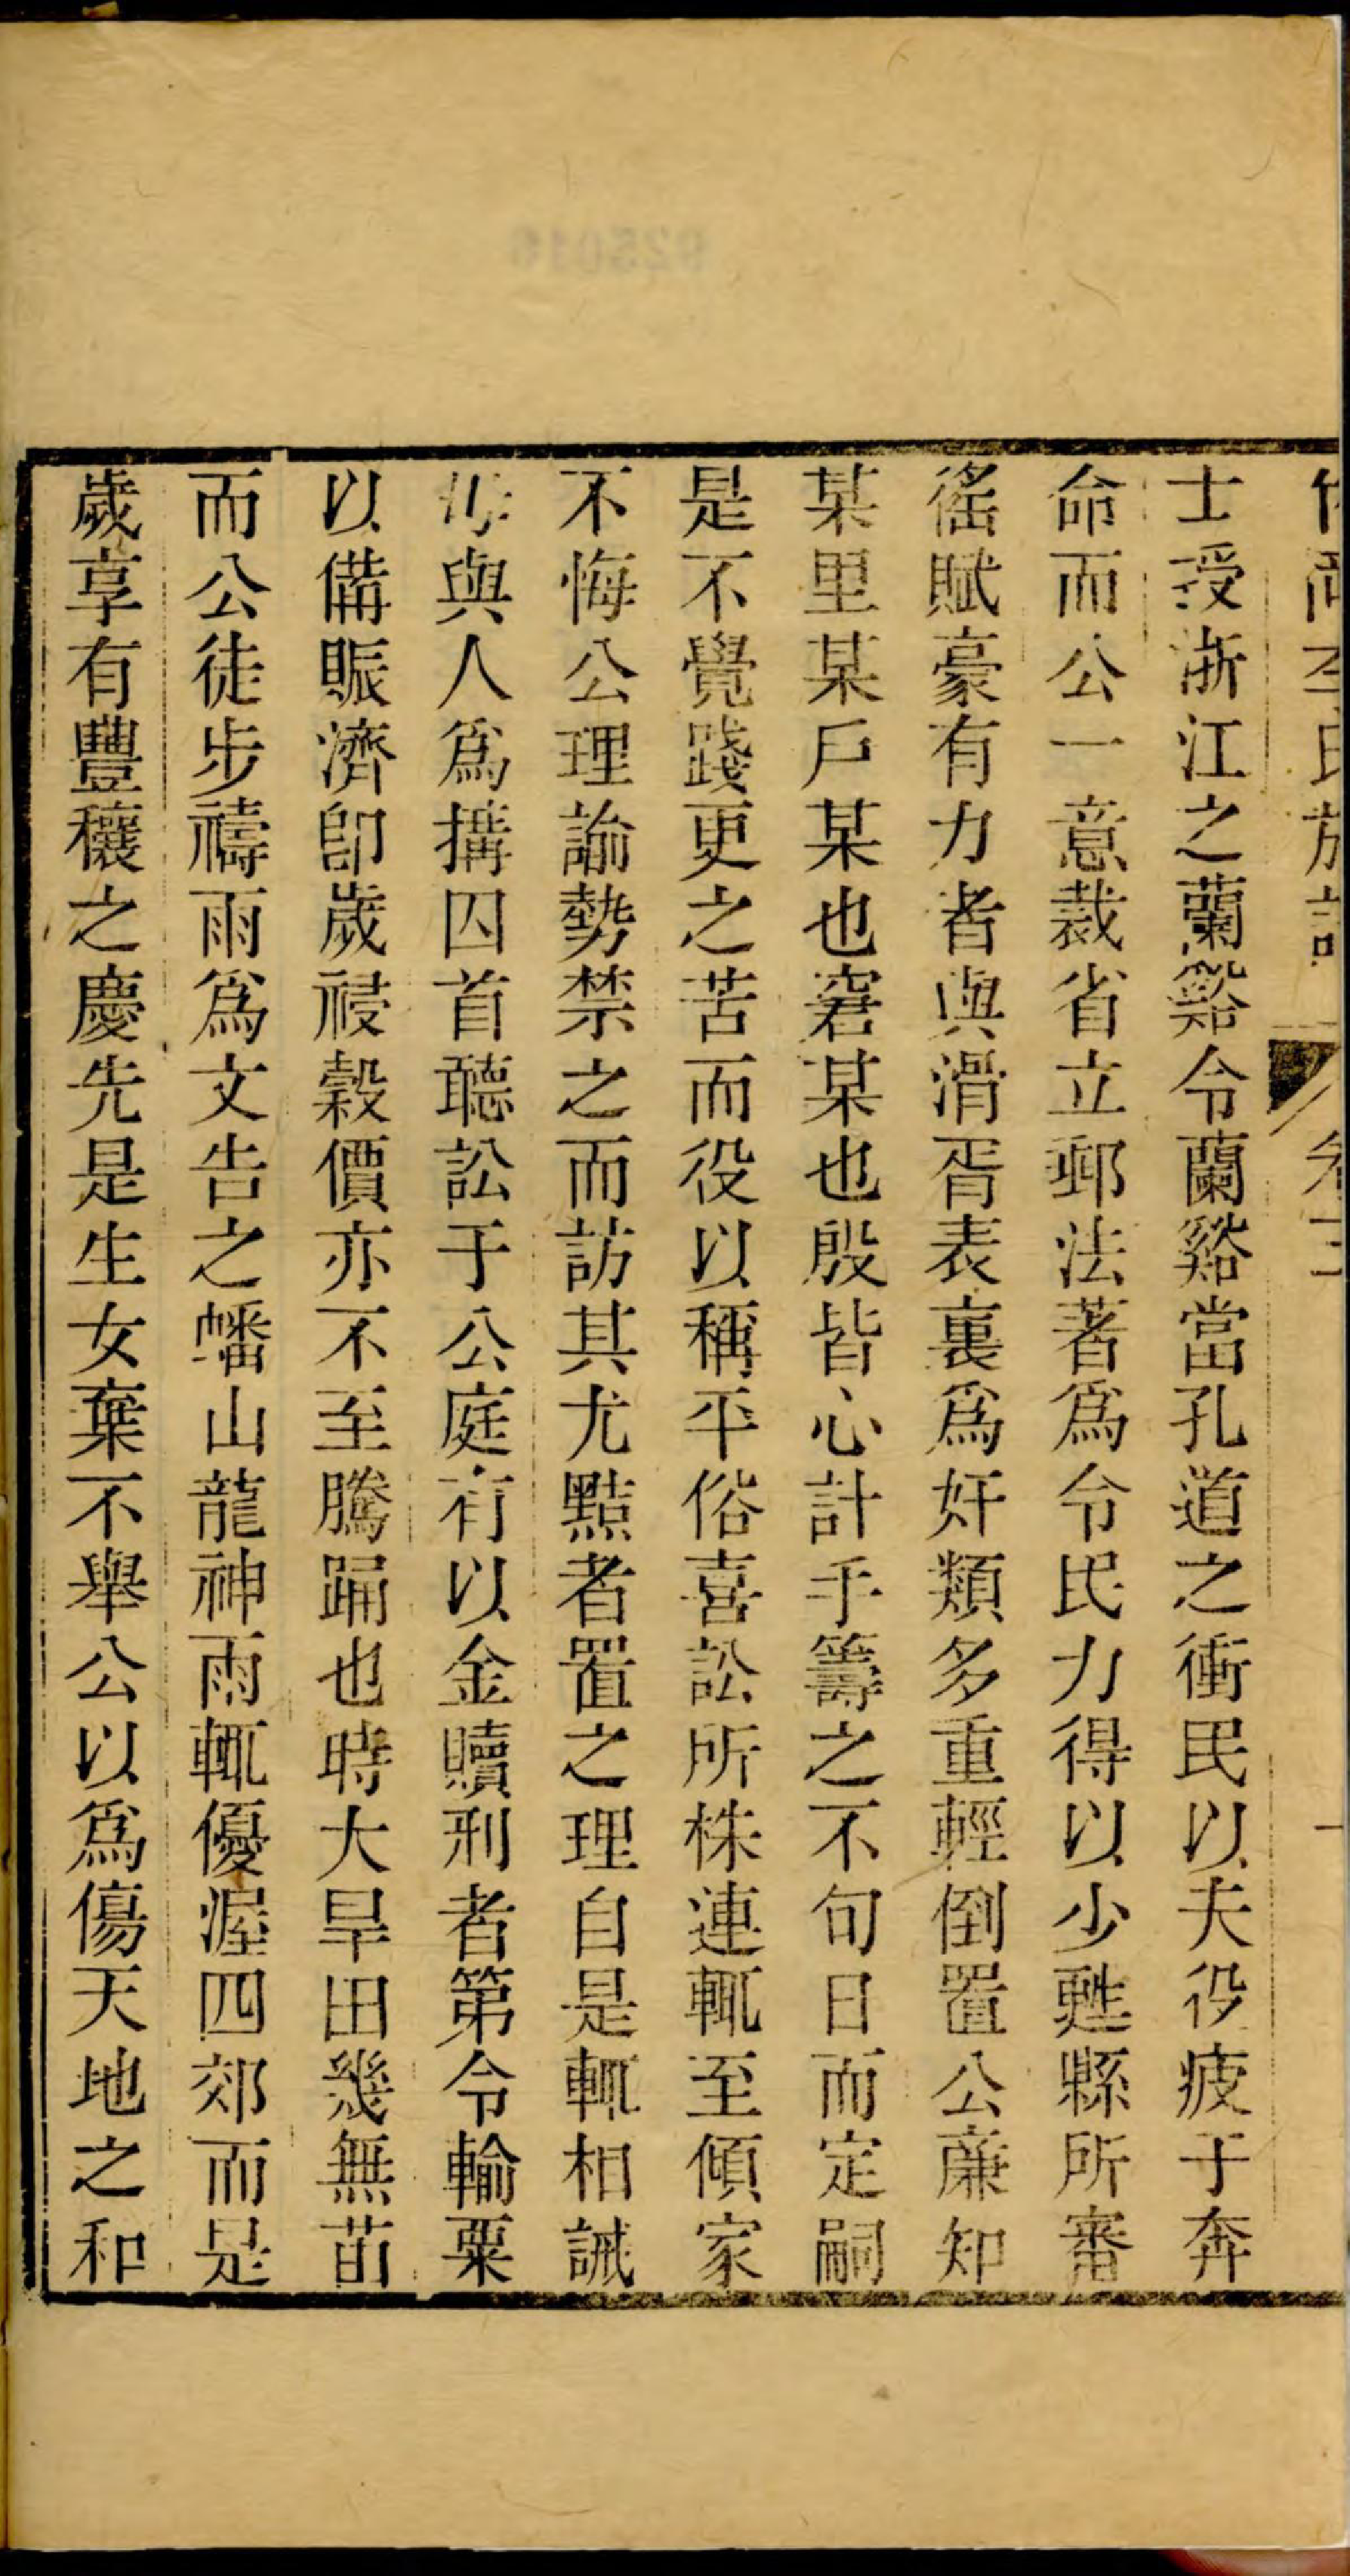 士授浙江之蘭谿令蘭谿當孔道之衝民以夫役疲于奔
命而公一意裁省立郵法著爲令民力得以少甦縣所審
徭賦豪有力者與滑胥表裏爲奸類多重輕倒置公廉知
某里某戶某也窘某也殷皆心計手籌之不旬日而定嗣
是不覺踐更之苦而役以稱平俗喜訟所株連輒至傾家
不悔公理諭勢禁之而訪其尤黠者置之理自是輒相誡
與人爲搆囚首聽訟于公庭有以金贖刑者第令輸粟
以備賑濟卽歲祲穀價亦不至騰踊也時大旱田幾無苗
而公徒步禱雨爲文告之蟠山龍神雨輒優渥四郊而是
歲享有豐穰之慶先是生女棄不舉公以爲傷天地之和